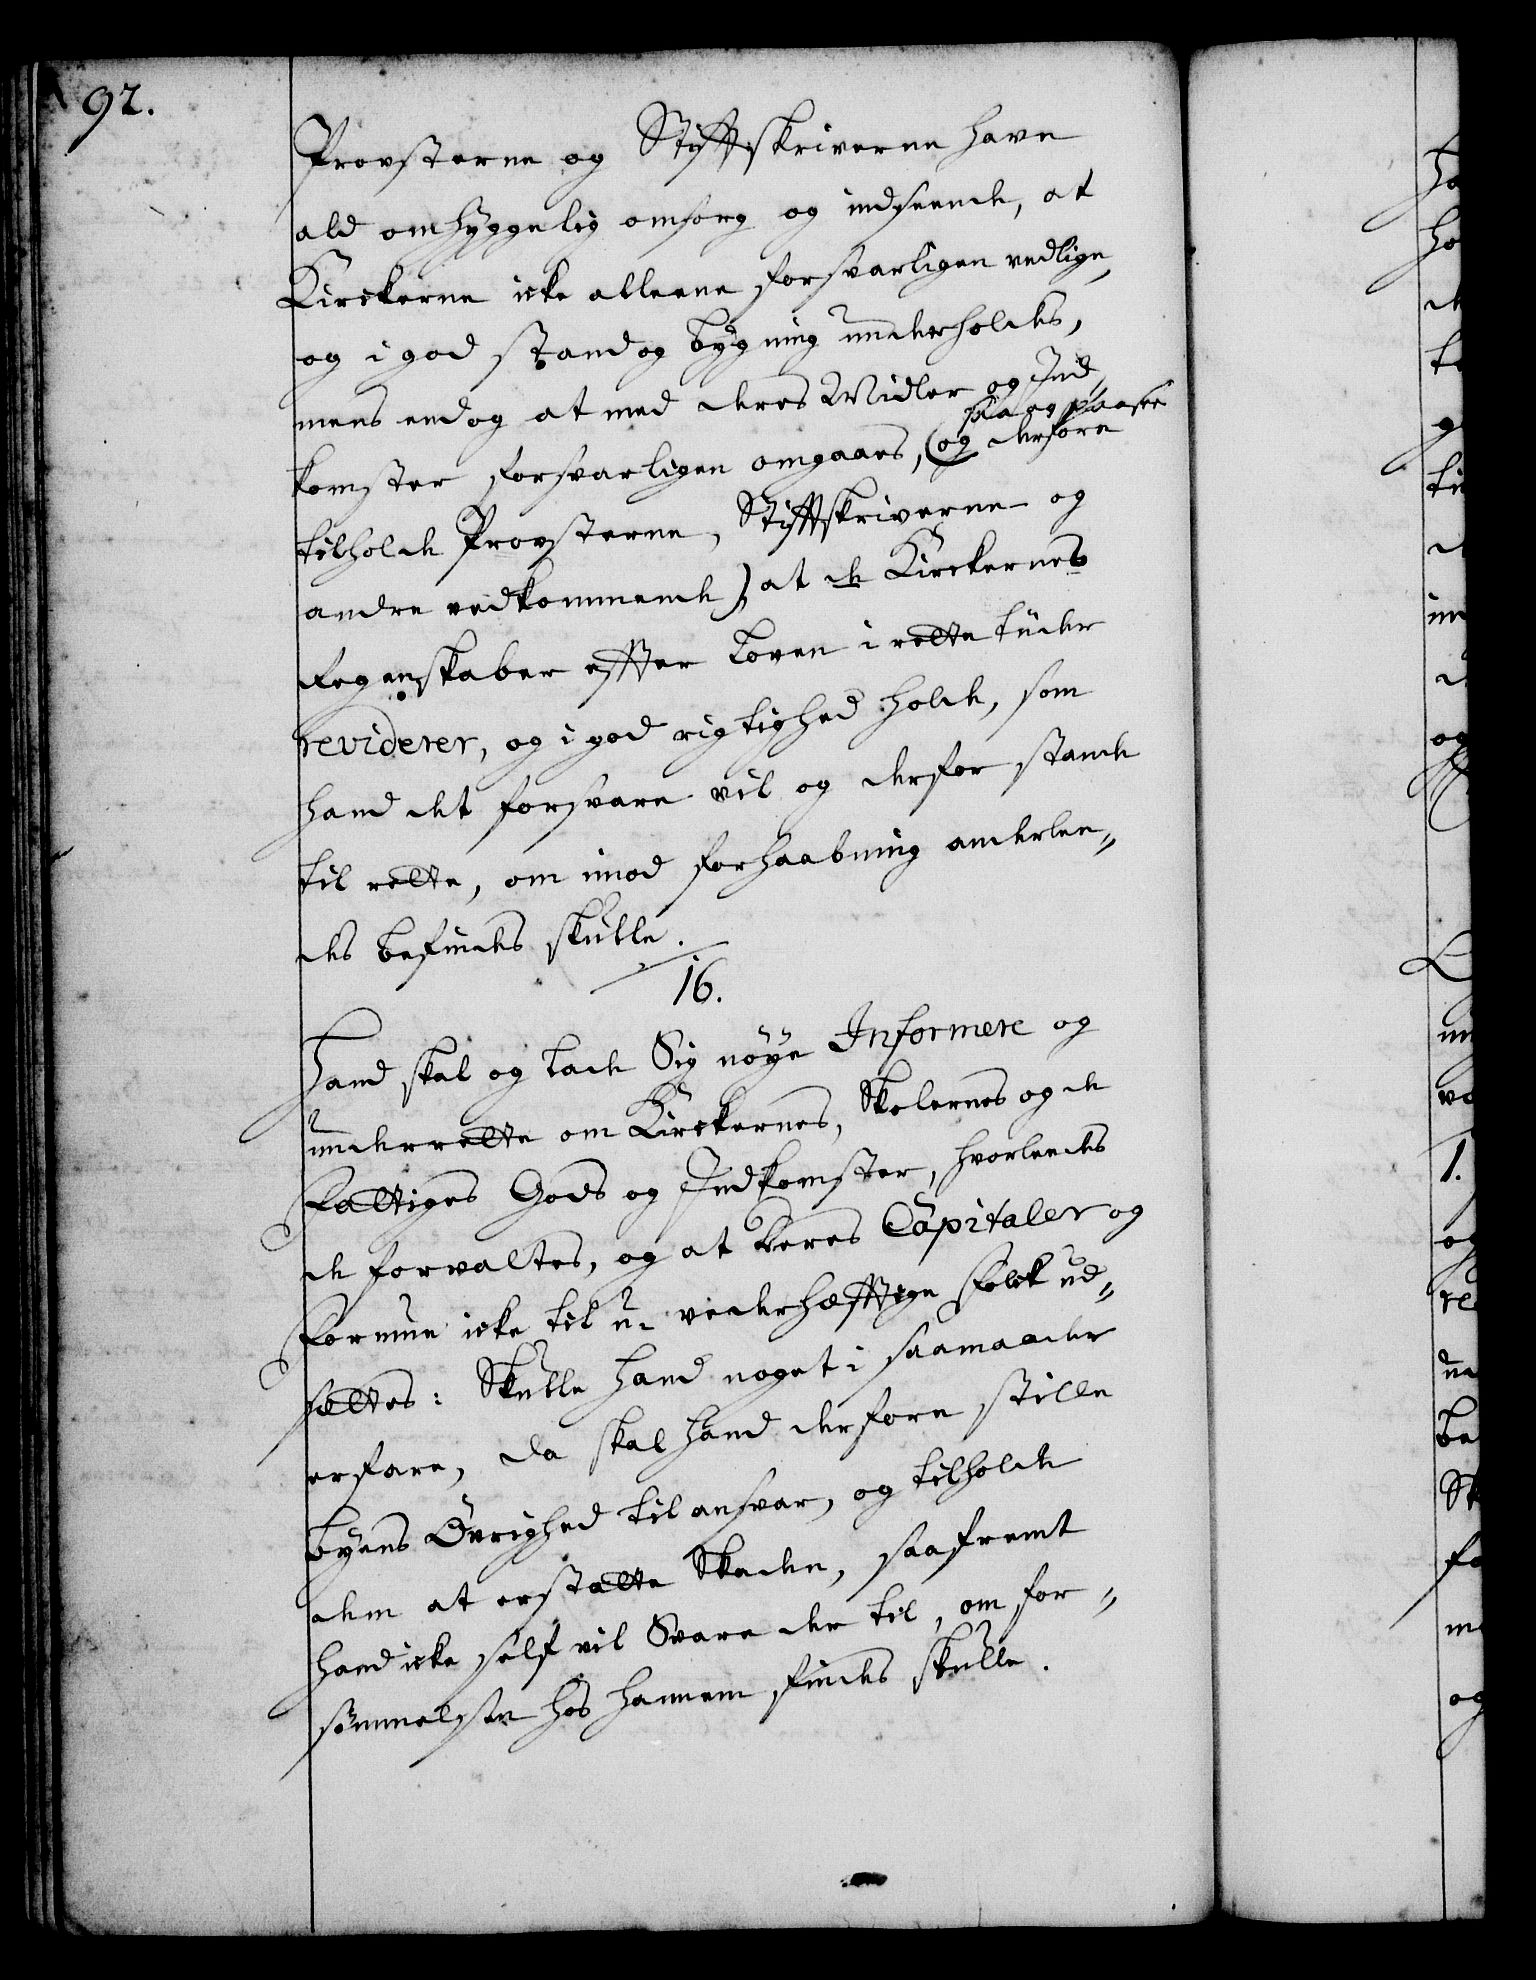 92.
Provsterne og Stiftskriverne have
ald omhyggelig omsorg og indseende, at
Kirckerne icke alleene forsvarligen vedlige,
og i god stand og bygning underholdes,
mens endog at med deres Midler og Ind,
saa og paasee
komster forsvarligen omgaaes, (og derfore
tilholde Provsterne, Stiftskriverne og
andre vedkommende) at de Kirckernes
Regenskaber effter Loven i rette tiider
reviderer, og i god rigtighed holde, som
hand det forsvare vil og derfor stande
til rette, om imod forhaabning anderlee„
des befindes skulle.
16.
Hand skal og lade Sig nöye Informere og
underrette om Kirckernes, Skolernes og de
Fattiges Gods og Indkomster, hvorleedes
de forvaltes, og at deres Capitaler og
Formue icke til u- viederhæfftige Folck ud„
settes: Skulle hand noget i saamaader
erfare, da skal hand derfore stille
byens Øvrighed til ansvar, og tilholde
dem at erstatte Skaden, saafremt
hand icke self vil Svare der til, om for„
sömmelsen hos hannem findes skulle.